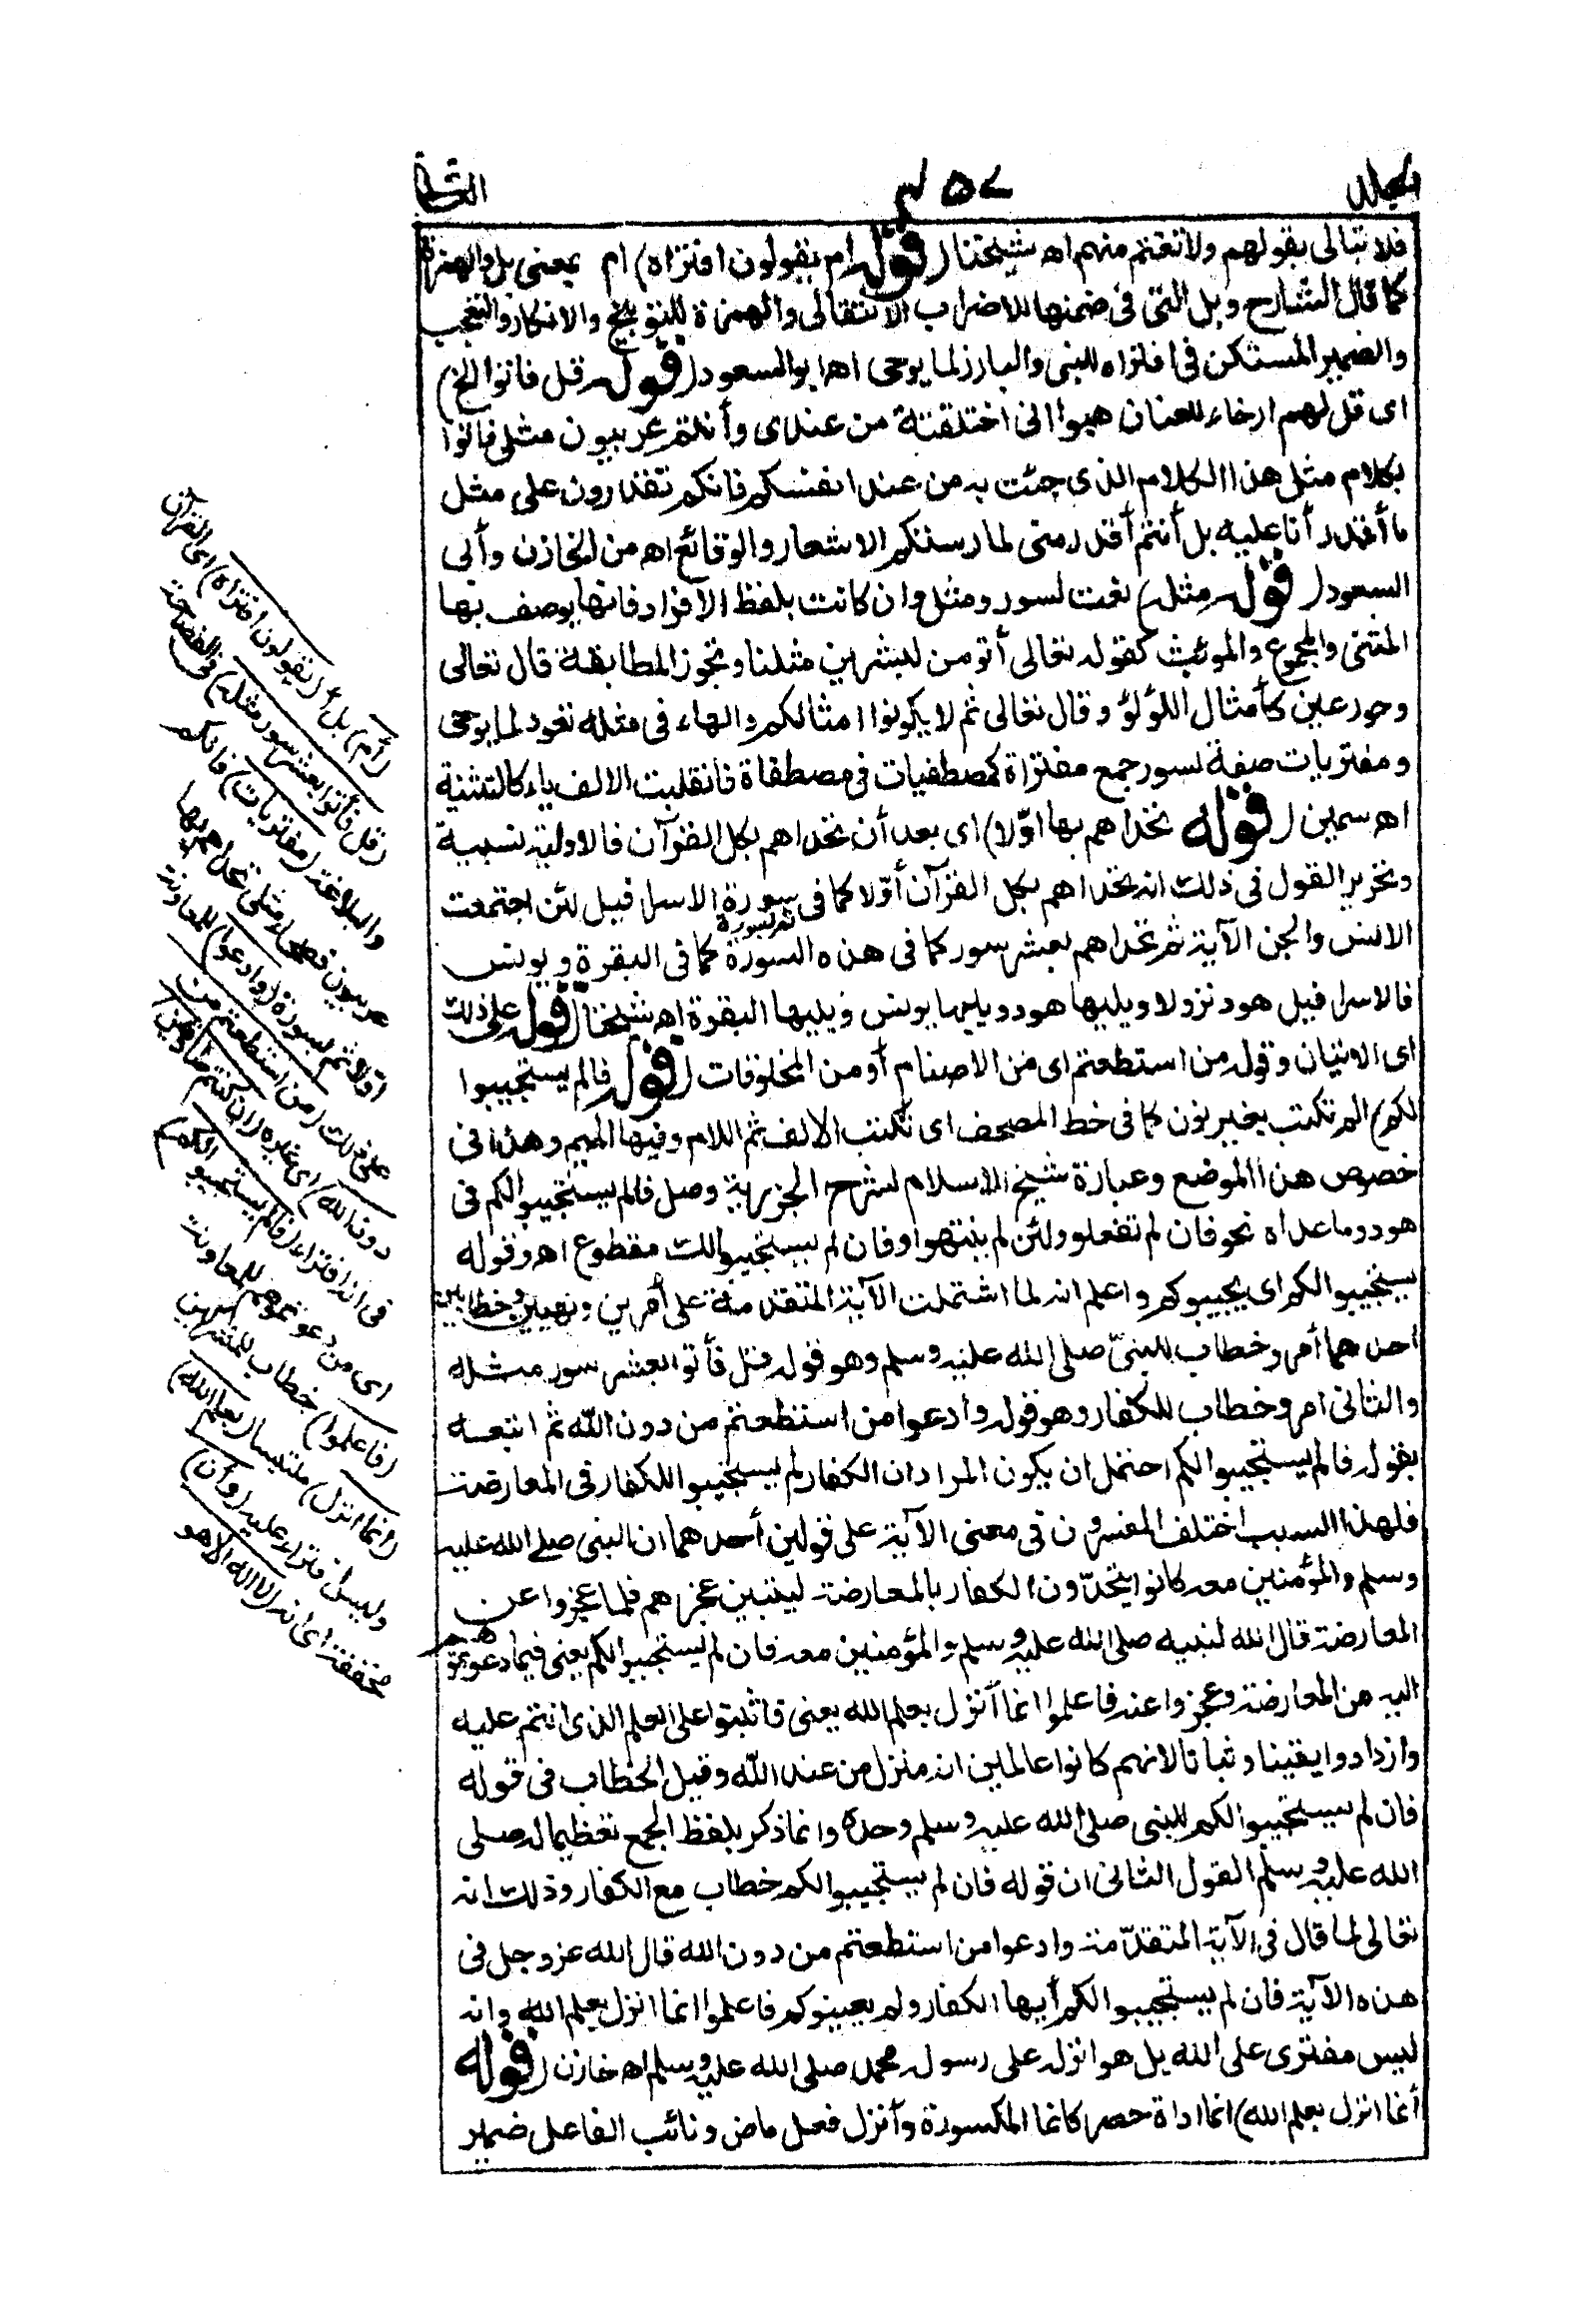 الثانى
٣٥٧
فلا تبالى بقولهم ولا تغتم منهم اه شيخنا (قوله ام يقولون افتراه) ام بمعنى بل والهمزة
كما قال الشارح وبل التى فى ضمنها للاضراب الانتقالى والهمزة للتوبيخ والانكار والتعجيب
والضمير المستكن فى افتراه للنبى والبارز لما يوحى اه ابو السعود (قوله قل فاتوا الخ)
اى قل لهم ارخاء للعنان هبوا انى اختلقته من عندى وأنتم عربيون مثلى فاتوا
بكلام مثل هذا الكلام الذى جئت به من عند انفسكم فانكم تقدرون على مثل
ما أقدر أنا عليه بل أنتم أقدر منى لما رستكم الاشعار والوقائع اه من الخازن وأبى
السعود (قوله مثله) نعت لسور ومثل وان كانت بلفظ الافراد فانها يوصف بها
المثنى والمجموع والمؤنث كقوله تعالى أنؤمن لبشرين مثلنا وتجوز المطابقة قال تعالى
وحور عين كأمثال اللؤلؤ وقال تعالى ثم لا يكونوا امثالكم والهاء فى مثله تعود لما يوحى
ومفتريات صفة لسور جمع مفتراة كمصطفيات فى مصطفاة فانقلبت الالف ياء كالتثنية
اه سمين (قوله تحداهم بها اوّلا) اى بعد أن تحداهم بكل القرآن فالاولية نسبية
وتحرير القول فى ذلك انه تحداهم بكل القرآن أوّلا كما فى سورة الاسرا قيل لئن اجتمعت
الانس والجن الآية ثم تحداهم بعشر سور كما فى هذه السورة ثم بسورة كما فى البقرة ويونس
فالاسرا قبل هود نزولا ويليها هود ويليها يونس ويليها البقرة اه شيخنا (قوله على ذلك
اى الاتيان وقوله من استطعتم اى من الاصنام أو من المخلوقات (قوله فالم يستجيبوا
لكم) الم تكتب بغير نون كما فى خط المصحف اى تكتب الالف ثم اللام وفيها الميم وهذا فى
خصوص هذا الموضع وعبارة شيخ الاسلام لشرح الجزرية وصل فالم يستجيبوا لكم فى
هود وما عداه نحو فان لم تفعلو ولئن لم ينتهوا وفان لم يستجيبوا لك مقطوع اه وقوله
يستجيبوا لكم اى يجيبوكم واعلم انه لما اشتملت الآية المتقدمة على أمرين ونهيين وخطابين
أحدهما أمر وخطاب للنبىّ صلى الله عليه وسلم وهو قوله قل فأتوا بعشر سور مثله
والثانى امر وخطاب للكفار وهو قوله وادعوا من استطعتم من دون الله ثم اتبعه
بقوله فالم يستجيبوا لكم احتمل ان يكون المراد ان الكفار لم يستجيبوا للكفار فى المعارضة
فلهذا السبب اختلف المفسرون فى معنى الآية على قولين أحدهما ان النبى صلے الله عليه
وسلم والمؤمنين معه كانوا يتحدّون الكفار بالمعارضة ليتبين عجزهم فلما عجزوا عن
المعارضة قال الله لنبيه صلى الله عليه وسلم والمؤمنين معه فان لم يستجيبوا لكم يعنى فيما دعوتموهم
اليه من المعارضة وعجزوا عنه فاعلموا انما أنزل بعلم الله يعنى فاثبتوا على العلم الذى انتم عليه
وازدادوا يقينا وثباتا لانهم كانوا عالمين انه منزل من عند الله وقيل الخطاب فى قوله
فان لم يستجيبوا لكم للنبى صلى الله عليه وسلم وحده وانما ذكر بلفظ الجمع تعظيما له صلى
الله عليه وسلم القول الثانى ان قوله فان لم يستجيبوا لكم خطاب مع الكفار وذلك انه
تعالى لما قال فى الآية المتقدّمة وادعوا من استطعتم من دون الله قال الله عز وجل فى
هذه الآية فان لم يستجيبوا لكم أيها الكفار ولم يعينوكم فاعلموا انما انزل بعلم الله وانه
ليس مفترى على الله بل هو انزله على رسوله محمد صلى الله عليه وسلم اه خازن (قوله
أنما انزل بعلم الله) انما اداة حصر كانما المكسورة وأنزل فعل ماض ونائب الفاعل ضمير
(أم) بل أ (يقولون افتراه) اى القرآن
(قل فأتوا بعشر سور مثله) فى الفصاحة
والبلاغة (مفتريات) فانكم
عربيون فصحاء مثلى تحداهم بها
اوّلا ثم بسورة (وادعوا) للمعاونة
على ذلك (من استطعتم من
دون الله) اى غيره (ان كنتم صادقين)
فى انه افتراء (فالم يستجيبوا لكم)
اى من دعوتموهم للمعاونة
(فاعلموا) خطاب للمشركين
(أنما انزل) ملتبسا (بعلم الله)
وليس افتراء عليه (وأن)
مخففة اى انه (لا اله الا هو